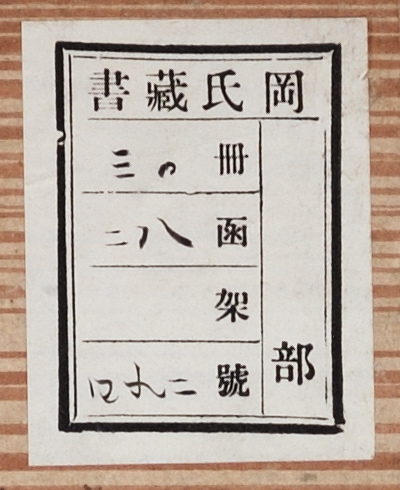 岡氏藏書
部
冊 三
函 八二
架
號 二九四